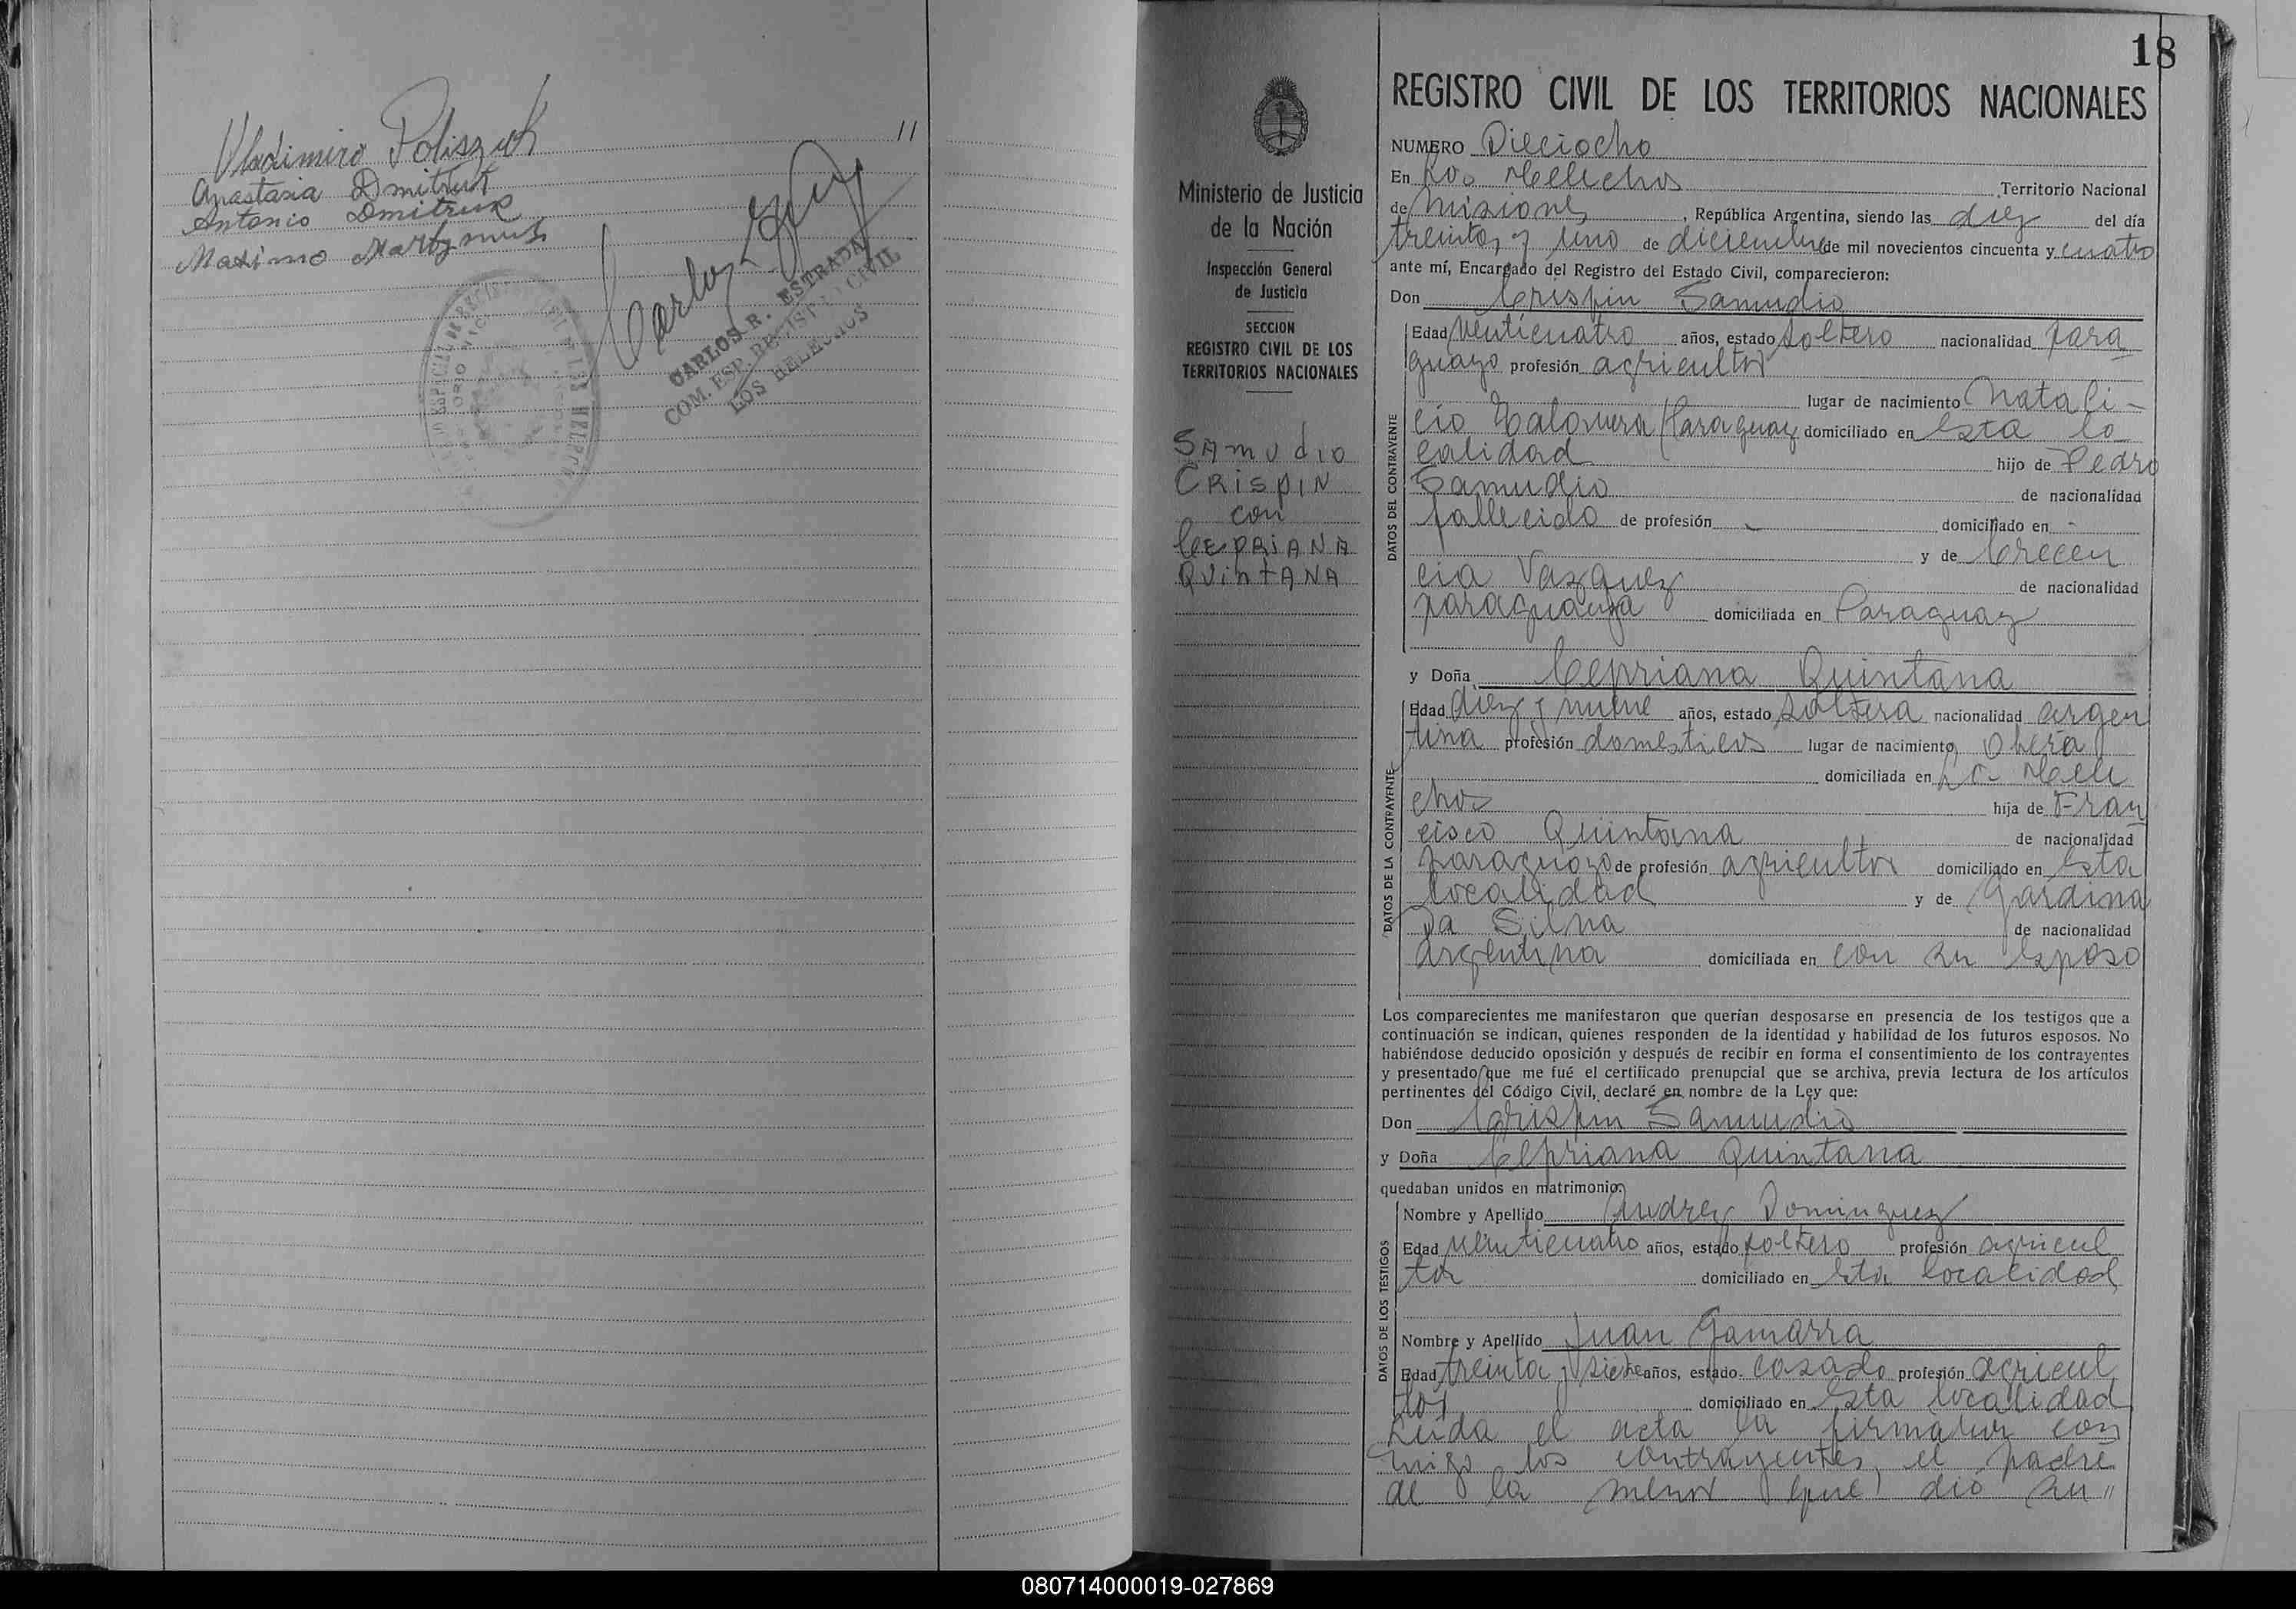 Vladimiro Poliszuk
Anastasia Dmitruk
Antonio Dmitruk
Maximo Martyniuk
11
CARLOS R. ESTRADA
COM. ESP. REGISTRO CIVIL
LOS HELECHOS
18
REGISTRO CIVIL DE LOS TERRITORIOS NACIONALES
Ministerio de Justicia
de la Nación
Inspección General
de Justicia
SECCION
REGISTRO CIVIL DE LOS
TERRITORIOS NACIONALES
SAmudio
CRispiN
con
CEpRiANA
QUintANA
NUMERO Dieciocho
En Los Helechos Territorio Nacional
de Misiones, República Argentina, siendo las diez del día
treinta y uno de diciembre de mil novecientos cincuenta y cuatro
ante mí, Encargado del Registro del Estado Civil, comparecieron:
Don Crispin Samudio
DATOS DEL CONTRAYENTE
Edad venticuatro años, estado soltero nacionalidad para
guayo profesión agricultor
lugar de nacimiento Natali-
cio Talavera Paraguay domiciliado en Esta lo
calidad hijo de Pedro
Samudio de nacionalidad
fallecido de profesión - domiciliado en -
y de Crecen
cia Vazquez de nacionalidad
paraguaya domiciliada en Paraguay
y Doña Cepriana Quintana
DATOS DE LA CONTRAYENTE
Edad diez y nueve años, estado soltera nacionalidad argen
tina profesión domesticos lugar de nacimiento Obera
domiciliada en Los Hele
chos hija de Fran
cisco Quintana de nacionalidad
paraguayo de profesión agricultor domiciliado en Esta
localidad y de Jardina
Da Silva de nacionalidad
argentina domiciliada en con su Esposo
Los comparecientes me manifestaron que querían desposarse en presencia de los testigos que a
continuación se indican, quienes responden de la identidad y habilidad de los futuros esposos. No
habiéndose deducido oposición y después de recibir en forma el consentimiento de los contrayentes
y presentado que me fué el certificado prenupcial que se archiva, previa lectura de los artículos
pertinentes del Código Civil, declaré en nombre de la Ley que:
Don Crispin Samudio
y Doña Cepriana Quintana
quedaban unidos en matrimonio:
DATOS DE LOS TESTIGOS
Nombre y Apellido Andrez Dominguez
Edad venticuatro años, estado soltero profesión agricul
tor domiciliado en Esta localidad
Nombre y Apellido Juan Gamarra
Edad treinta y siete años, estado casado profesión agricul
tor domiciliado en Esta localidad
Leida el acta la firmaron con
migo los contrayentes, el padre
de la menor que dió su "
080714000019-027869